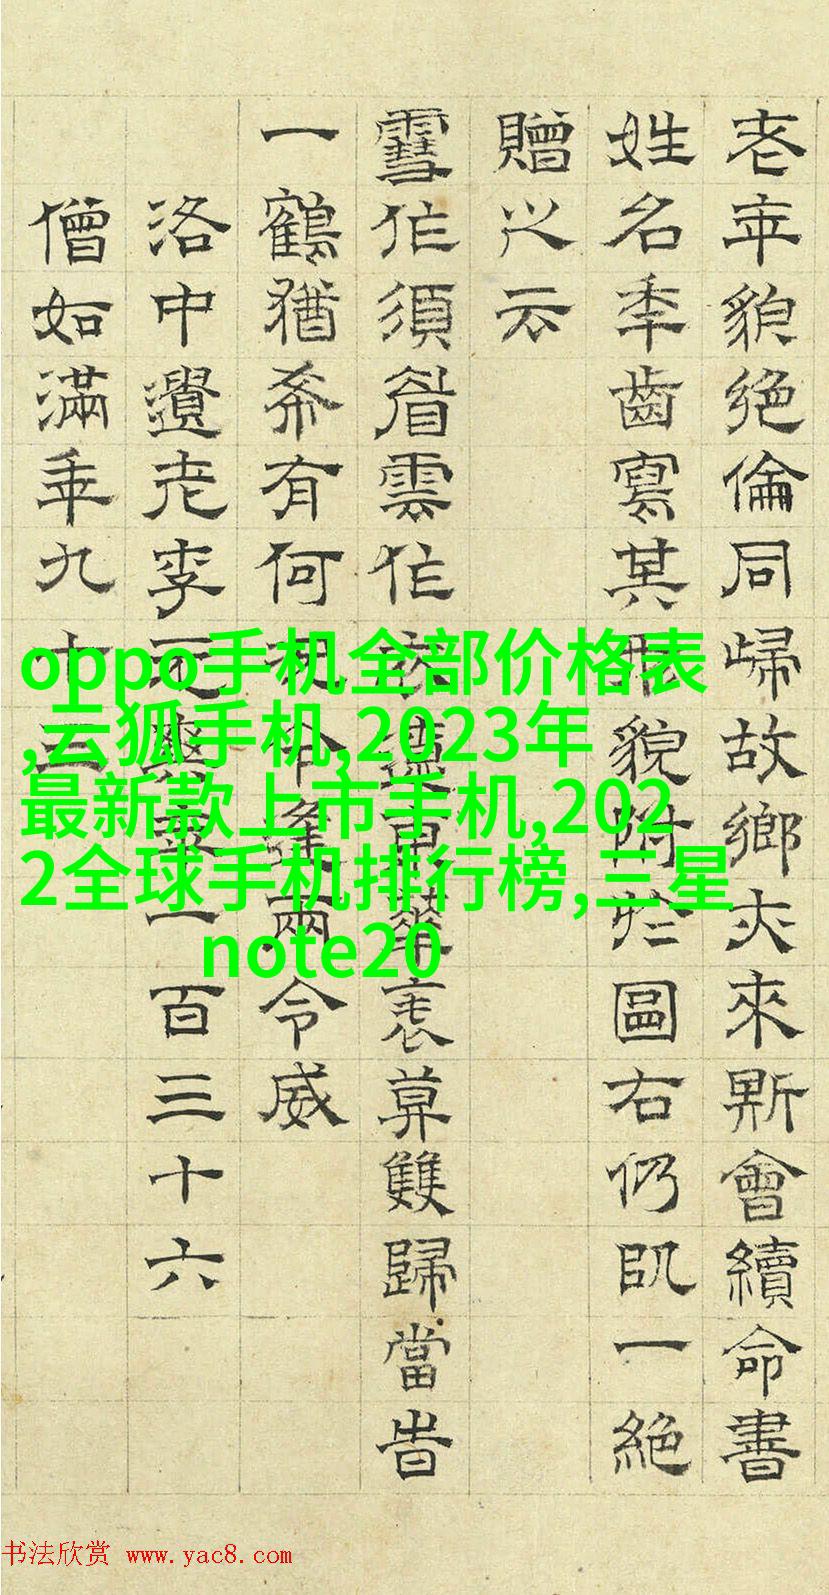 老年貌絕倫同歸故鄉亦來斯會續命書
姓名年齒寫其形貌附於圖右仍以一絕
贈之云
雪作須眉雲作衣遼東華表暮雙歸當時
一鶴猶希有何況今逢兩令威
洛中遺老李元爽年一百三十六
僧如滿年九十
oppo手机全部价格表
,云狐手机,2023年
最新款上市手机,202
2全球手机排行榜,三星
note20
书法欣赏 www.yac8.com